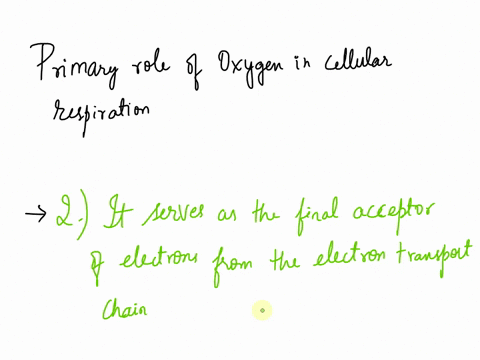 Primary role of Oxygen in cellular
respiration
→ 2.) It serves as the final acceptor
of electrons from the electron transport
chain